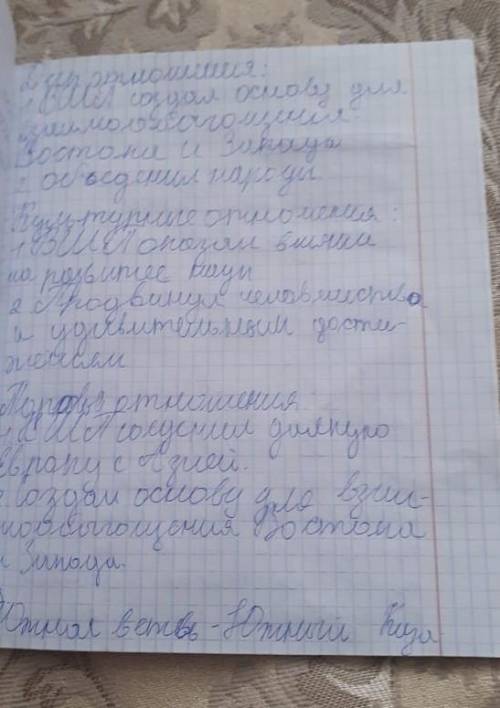 отношения:
1 ВШП создал основу для
взаимообогащения
Востока и Запада
2 объеденил народы
Культурные отношения:
1 ВШП оказал влияни
на развитее
2 Продвинул человечиство
к удивительным дости-
жениям
отношения:
1 ВШП далёкую
Европу с Азией.
2 создал основу для взаи-
мообогощения Востока
и Запада.
Южная ветвь - Южный Каза